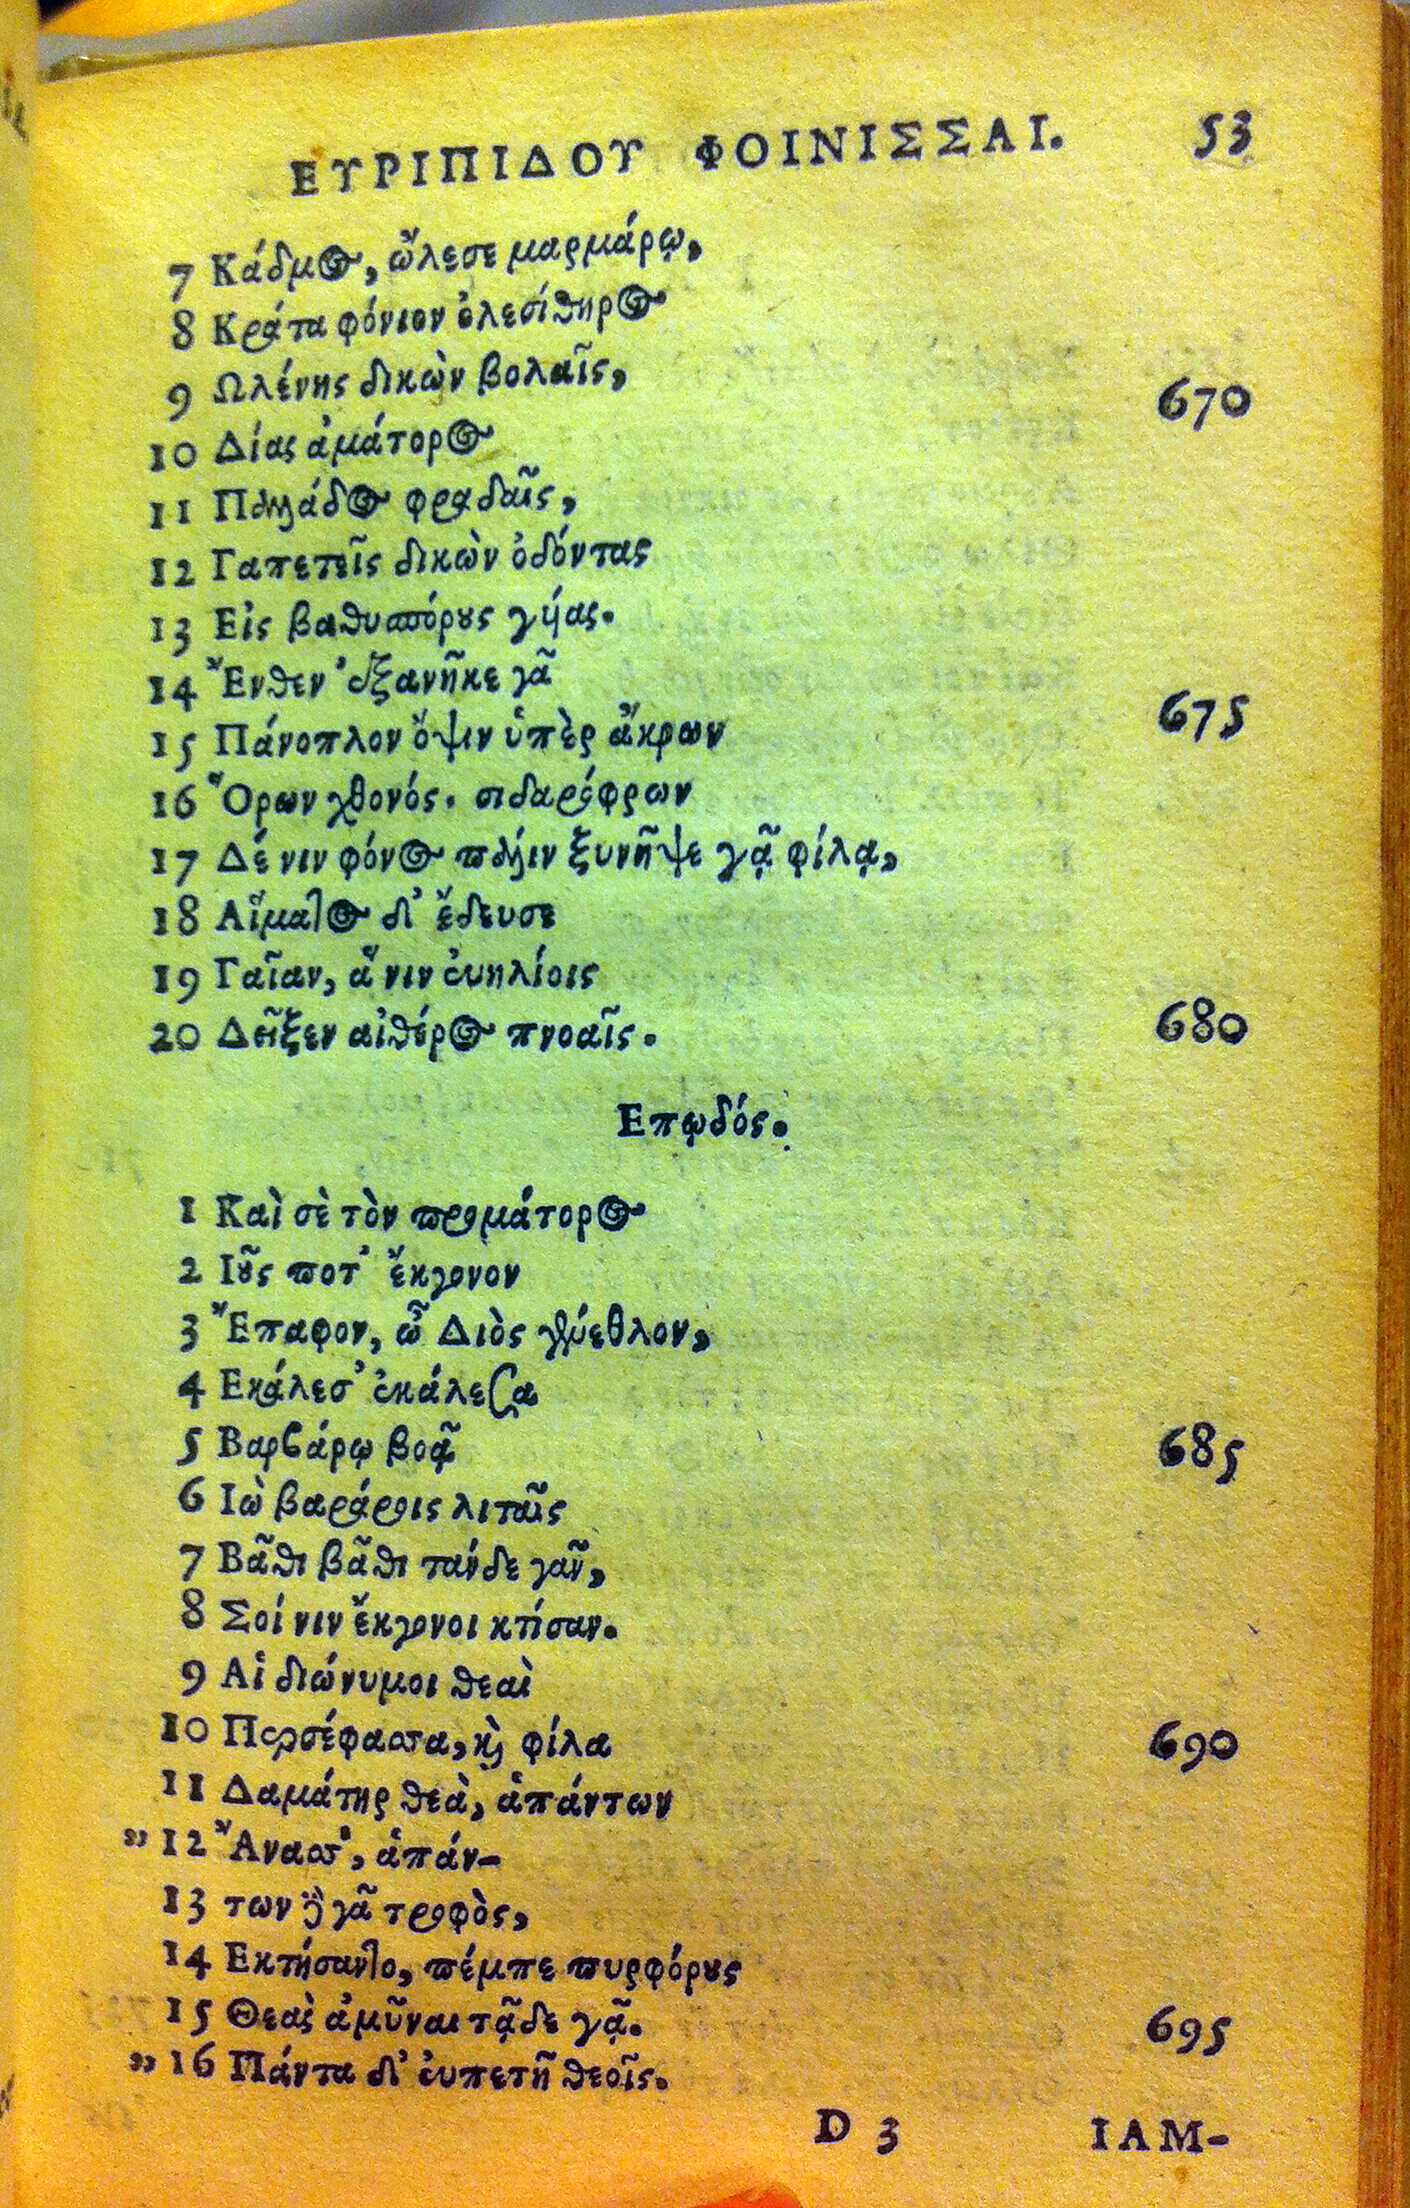 ΕΥΡΙΠΙΔΟΥ ΦΟΙΝΙΣΣΑΙ. 53
7 Κάδμος, ὤλεσε μαρμάρῳ,
8 Κρᾶτα φόνιον ὀλεσίθηρος
9 Ωλένης δικὼν βολαῖς, 670
10 Δίας ἀμάτορος
11 Παλλάδος φραδαῖς,
12 Γαπετεῖς δικὼν ὀδόντας
13 Εἰς βαθυσπόρους γύας.
14 Ἔνθεν ἐξανῆκε γᾶ 675
15 Πάνοπλον ὄψιν ὑπὲρ ἄκρων
16 Ὅρων χθονός. σιδαρόφρων
17 Δέ νιν φόνος πάλιν ξυνῆψε γᾷ φίλᾳ,
18 Αἵματος δ' ἔδευσε
19 Γαῖαν, ἅ νιν εὐηλίοις
20 Δεῖξεν αἰθέρος πνοαῖς. 680
Επῳδός.
1 Καὶ σὲ τὸν προμάτορος
2 Ιοῦς ποτ' ἔκγονον
3 Ἔπαφον, ὦ Διὸς γένεθλον,
4 Εκάλεσ' ἐκάλεσα
5 Βαρβάρῳ βοᾷ 685
6 Ιὼ βαράροις λιταῖς
7 Βᾶθι βᾶθι τάνδε γᾶν,
8 Σοί νιν ἔκγονοι κτίσαν.
9 Αἱ διώνυμοι θεαὶ
10 Περσέφαστα, καὶ φίλα 690
11 Δαμάτηρ θεὰ, ἁπάντων
" 12 Ἄναστ', ἁπάν-
13 των δὲ γᾶ τροφὸς,
14 Εκτήσαντο, πέμπε πυρφόρους
15 Θεαὶ ἀμῦναι τᾷδε γᾷ. 695
" 16 Πάντα δ' εὐπετῆ θεοῖς.
D 3 ΙΑΜ-